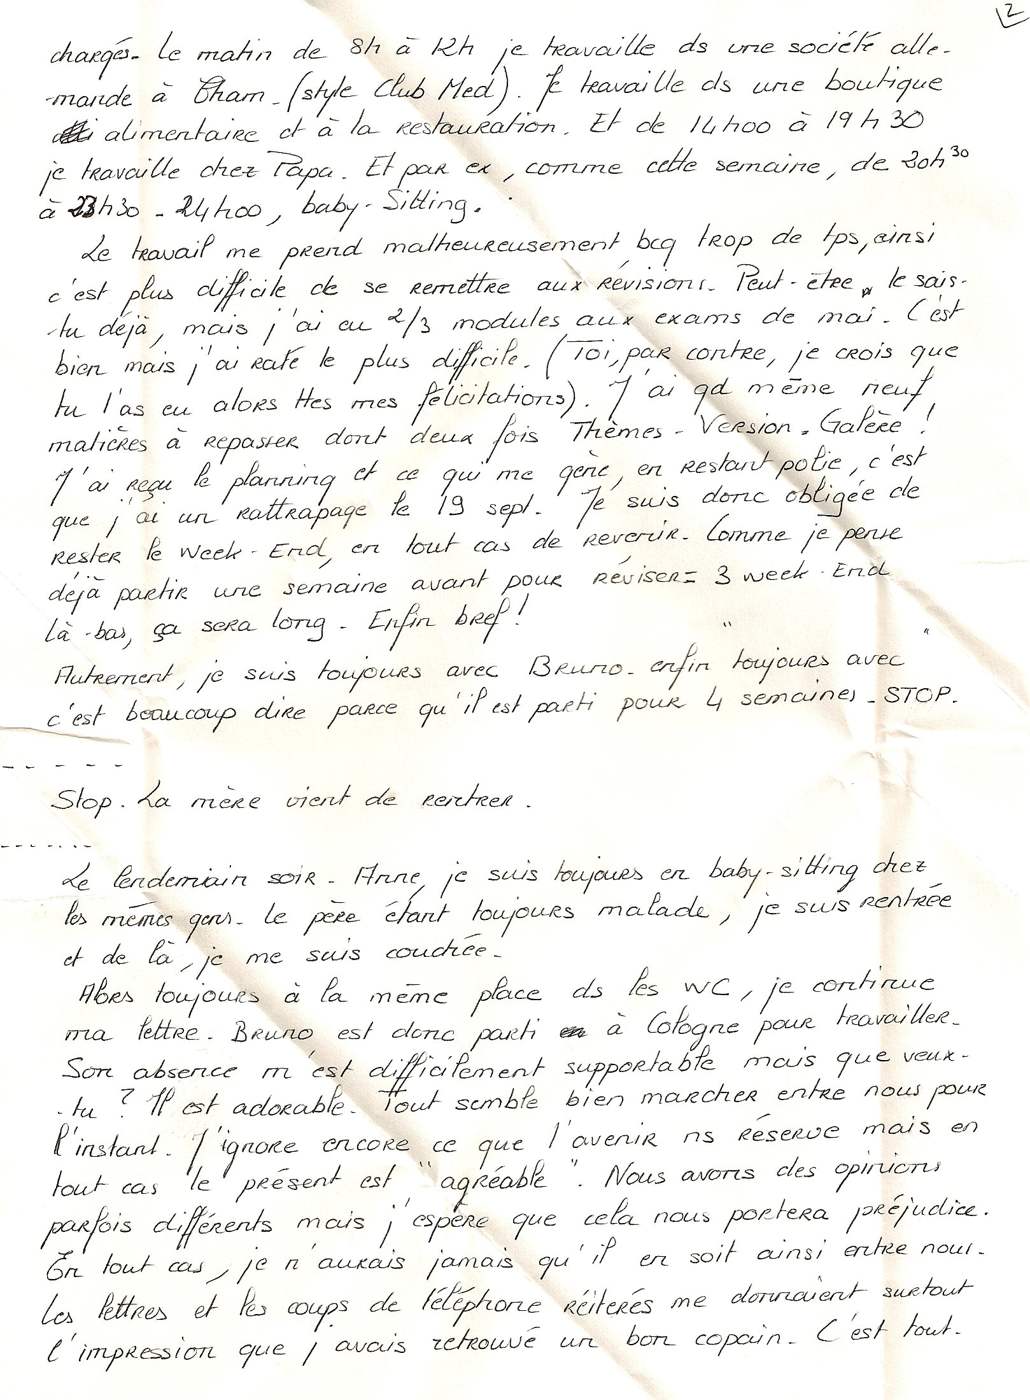 2
chargés. Le matin de 8h à 12h je travaille ds une société alle-
-mande à Cham. (style Club Med). Je travaille ds une boutique
alimentaire et à la restauration. Et de 14h00 à 19h30
je travaille chez Papa. Et par ex, comme cette semaine, de 20h30
à 23h30 - 24h00, baby-Sitting.
Le travail me prend malheureusement bcq trop de tps, ainsi
c'est plus difficile de se remettre aux révisions. Peut-être le sais-
-tu déjà, mais j'ai eu 2/3 modules aux exams de mai. C'est
bien mais j'ai raté le plus difficile. (Toi, par contre, je crois que
tu l'as eu alors ttes mes félicitations). J'ai qd même neuf
matières à repasser dont deux fois Thèmes - Version. Galère !
J'ai reçu le planning et ce qui me gène, en restant polie, c'est
que j'ai un rattrapage le 19 sept. Je suis donc obligée de
rester le Week-End, en tout cas de revenir. Comme je pense
déjà partir une semaine avant pour réviser = 3 week-End
là-bas, ça sera long. Enfin bref !
Autrement, je suis toujours avec Bruno. enfin "toujours avec"
c'est beaucoup dire parce qu'il est parti pour 4 semaines. STOP.
Stop. La mère vient de rentrer.
Le lendemain soir. Anne, je suis toujours en baby-sitting chez
les mêmes gens. Le père étant toujours malade, je suis rentrée
et de là, je me suis couchée.
Alors toujours à la même place ds les WC, je continue
ma lettre. Bruno est donc parti à Cologne pour travailler.
Son absence m'est difficilement supportable mais que veux-
-tu ? Il est adorable. Tout semble bien marcher entre nous pour
l'instant. J'ignore encore ce que l'avenir ns réserve mais en
tout cas le présent est "agréable". Nous avons des opinions
parfois différents mais j'espère que cela nous portera préjudice.
En tout cas, je n'aurais jamais qu'il en soit ainsi entre nous.
Les lettres et les coups de téléphone réiterés me donnaient surtout
l'impression que j'avais retrouvé un bon copain. C'est tout.